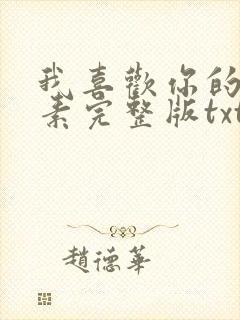 我喜歡你的
素完整版txt
趙德華